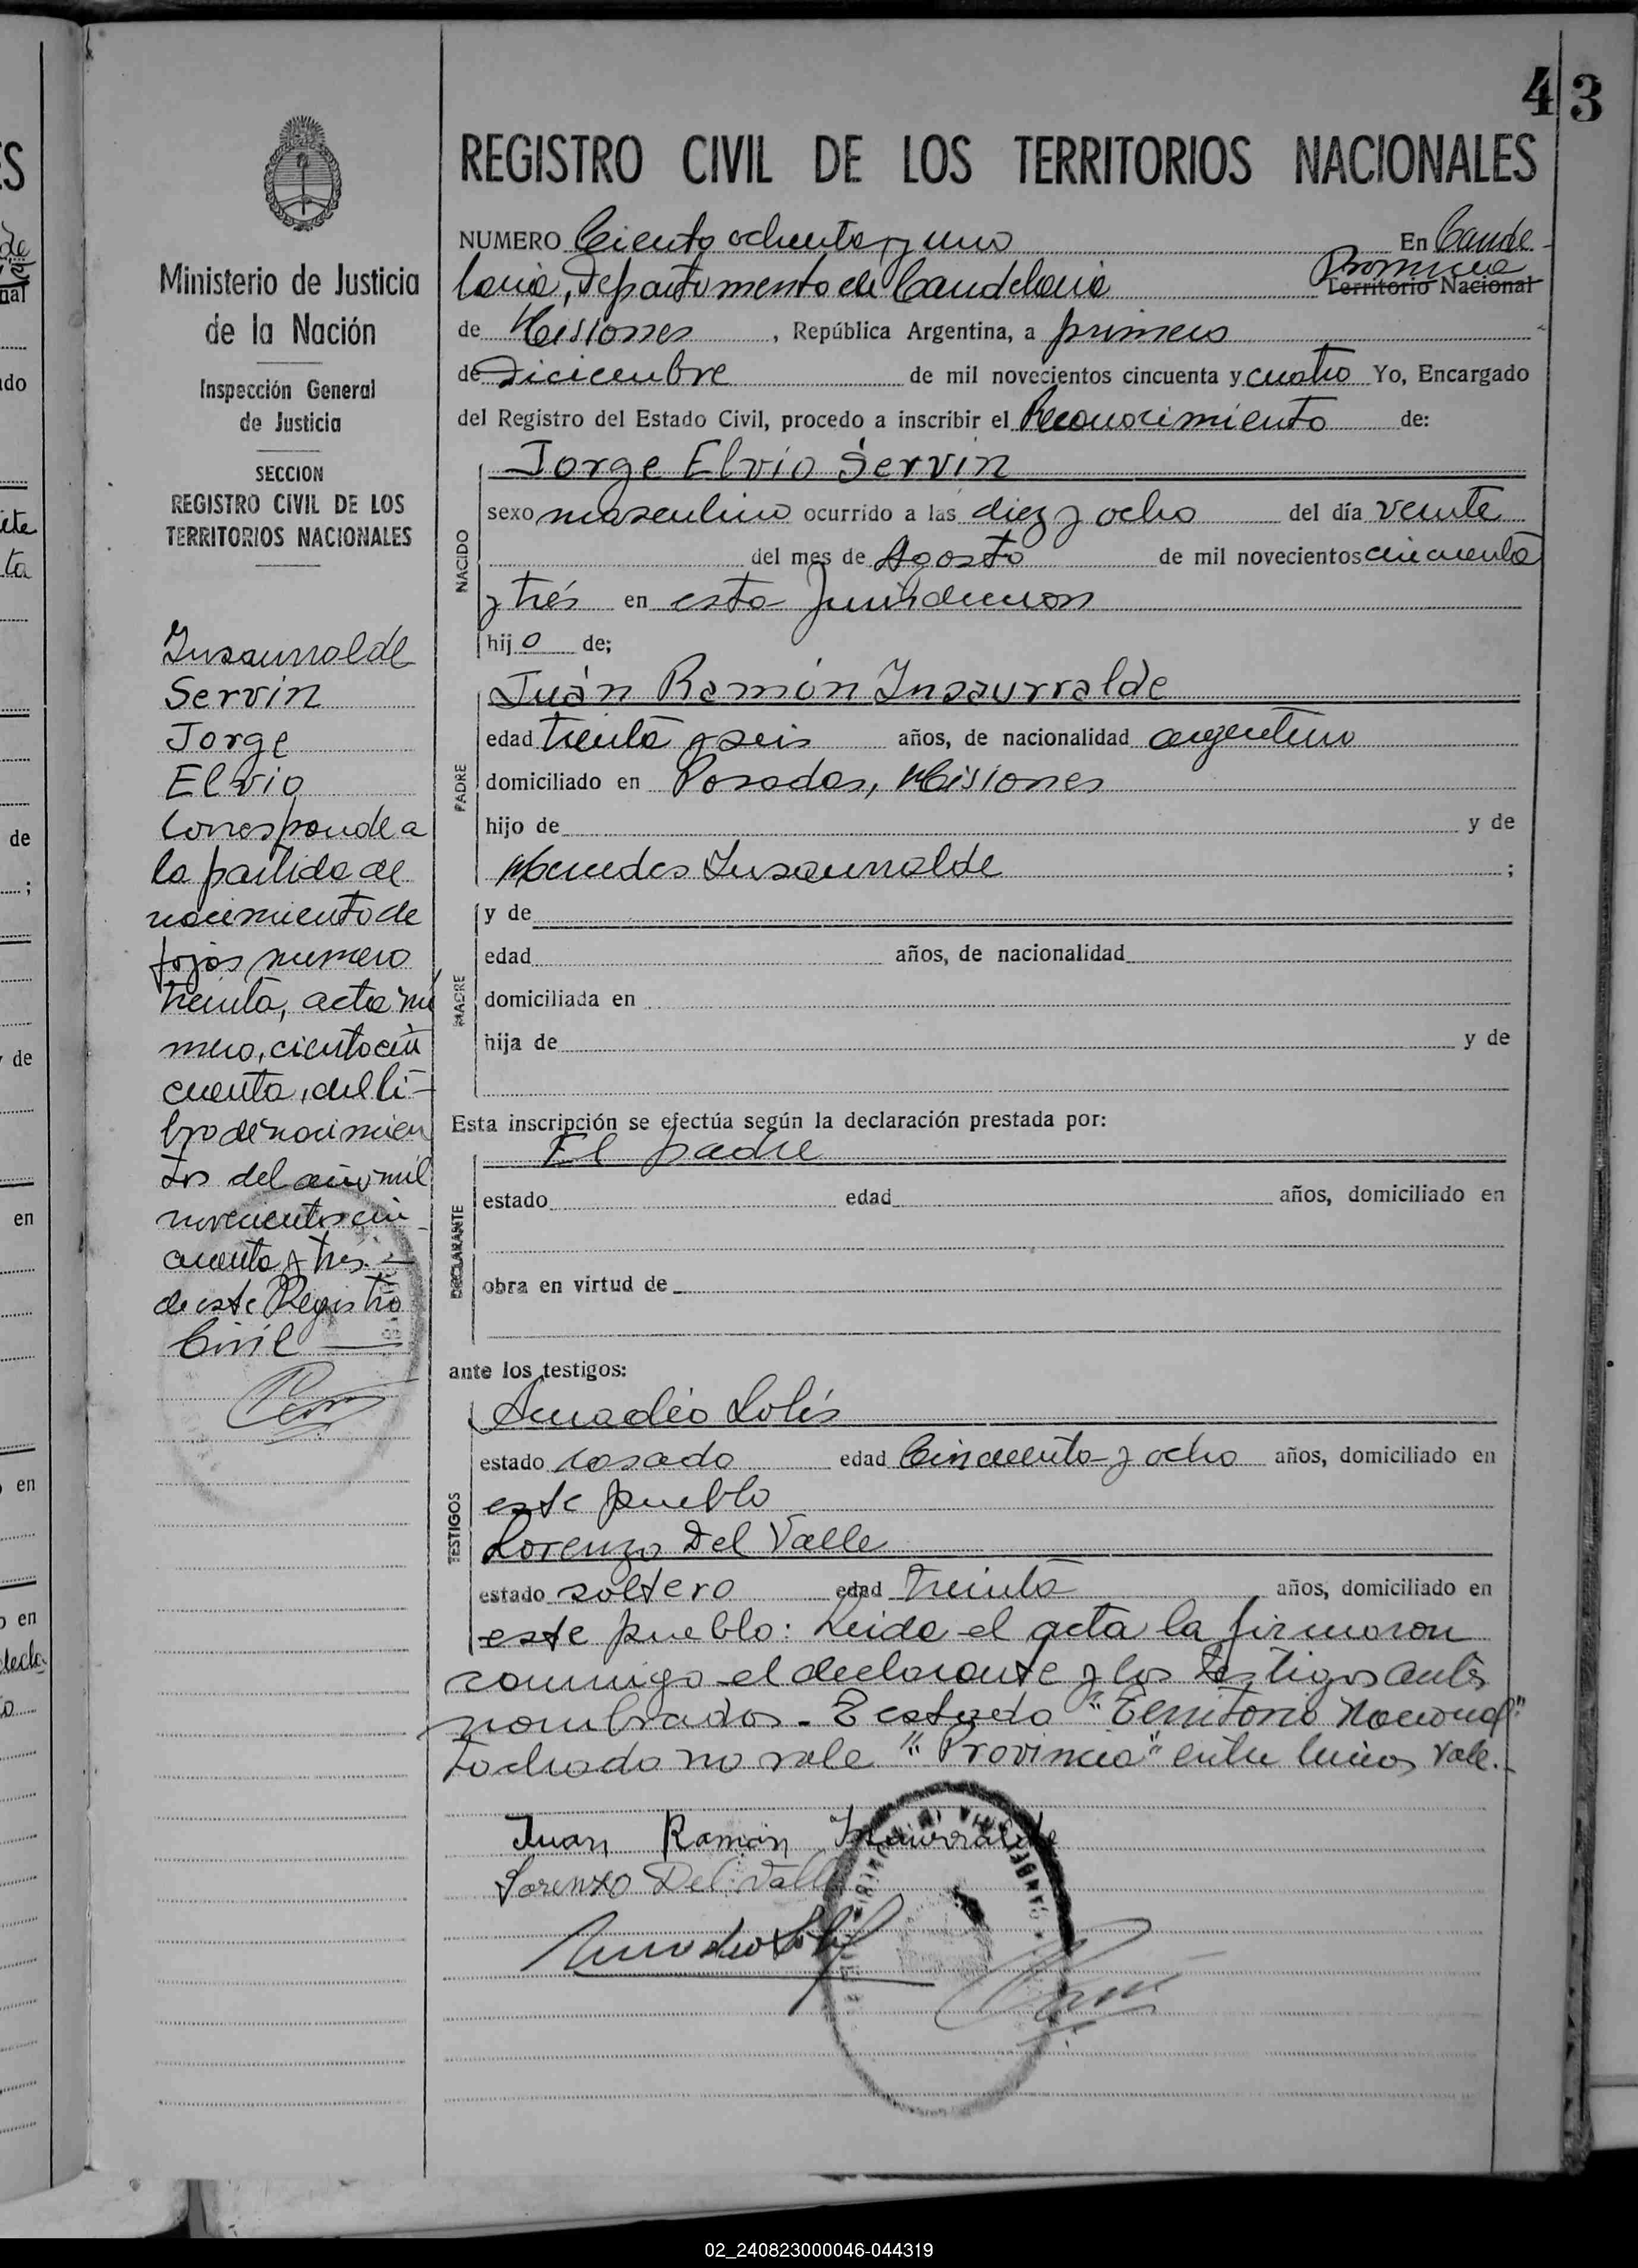 43
REGISTRO CIVIL DE LOS TERRITORIOS NACIONALES
NUMERO Ciento ochenta y uno En Cande-
laria, Departamento de Candelaria Provincia Territorio Nacional
de Misiones, República Argentina, a primero
de Diciembre de mil novecientos cincuenta y cuatro Yo, Encargado
del Registro del Estado Civil, procedo a inscribir el Reconocimiento de:
NACIDO
Jorge Elvio Servin
sexo masculino ocurrido a las diez y ocho del día veinte
del mes de Agosto de mil novecientos cincuenta
y trés en esta Jurisdiccion
hijo de;
PADRE
Juán Ramón Insaurralde
edad treinta y seis años, de nacionalidad argentino
domiciliado en Posadas, Misiones
hijo de y de
Mercedes Insaurralde ;
MADRE
y de
edad años, de nacionalidad
domiciliada en
hija de y de
Esta inscripción se efectúa según la declaración prestada por:
DECLARANTE
El padre
estado edad años, domiciliado en
obra en virtud de
ante los testigos:
TESTIGOS
Amadéo Solís
estado casado edad Cincuenta y ocho años, domiciliado en
este pueblo
Lorenzo Del Valle
estado soltero edad treinta años, domiciliado en
este pueblo: Leida el acta la firmaron
conmigo el declarante y los testigos antes
nombrados.- "Territorio Nacional"
tachado no vale "Provincia" entre lineas vale.-
Juan Ramón Insaurralde
Lorenzo Del Valle
Amadeo Solís
Ministerio de Justicia
de la Nación
Inspección General
de Justicia
SECCION
REGISTRO CIVIL DE LOS
TERRITORIOS NACIONALES
Insaurralde
Servin
Jorge
Elvio
Corresponde a
la partida de
nacimiento de
fojas numero
treinta, acta nú
mero, ciento cin
cuenta, del li-
bro de nacimien
tos del año mil
novecientos cin-
cuenta y trés.-
de este Registro
Civil
02_240823000046-044319